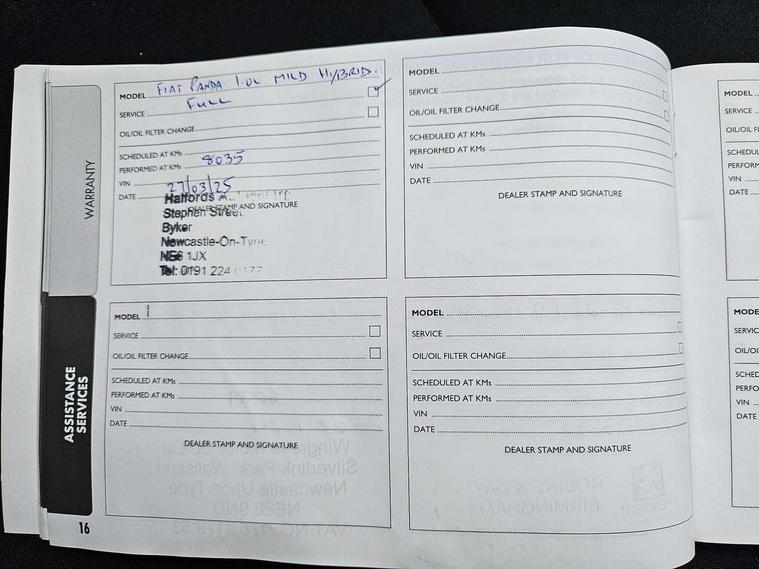 WARRANTY
ASSISTANCE
SERVICES
16
MODEL FIAT PANDA 1.0L MILD HYBRID.
SERVICE FULL
OIL/OIL FILTER CHANGE
SCHEDULED AT KMs
PERFORMED AT KMs 8035
VIN
DATE 27/03/25
DEALER STAMP AND SIGNATURE
Halfords
Stephen Street
Byker
Newcastle-On-Tyne
NE6 1JX
Tel: 0191 224
MODEL
SERVICE
OIL/OIL FILTER CHANGE
SCHEDULED AT KMs
PERFORMED AT KMs
VIN
DATE
DEALER STAMP AND SIGNATURE
MODEL
SERVICE
OIL/OIL FILTER CHANGE
SCHEDULED AT KMs
PERFORMED AT KMs
VIN
DATE
DEALER STAMP AND SIGNATURE
MODEL
SERVICE
OIL/OIL FILTER CHANGE
SCHEDULED AT KMs
PERFORMED AT KMs
VIN
DATE
DEALER STAMP AND SIGNATURE
MODEL
SERVICE
OIL/OIL FI
SCHEDUL
PERFORM
VIN
DATE
MODE
SERVIC
OIL/OI
SCHED
PERFO
VIN
DATE